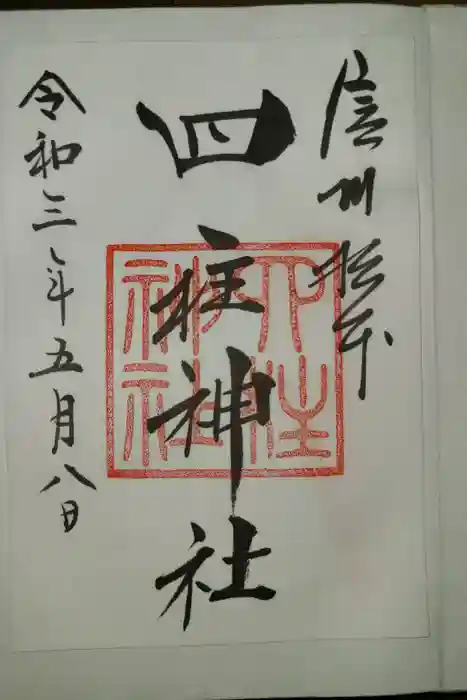 信州松本
四柱神社
四柱神社
令和三年五月八日